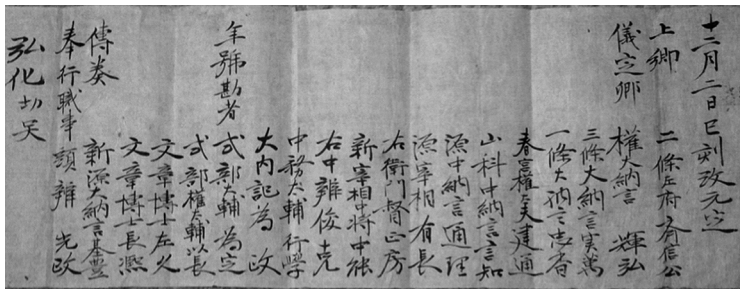 十二月二日巳刻改元定
上卿 二條左府 斉信公
儀定卿 權大納言 輝弘
三條大納言実萬
一條大納言忠香
春宮權大夫建通
山科中納言言知
源中納言通理
源宰相有長
右衛門督正房
新宰相中将中能
右中辨俊克
中務大輔行學
大内記為政
年號勘者 式部大輔為定
式部權大輔以長
文章博士在久
文章博士長凞
傳奏 新源大納言基豊
奉行職事 頭辨光政
弘化